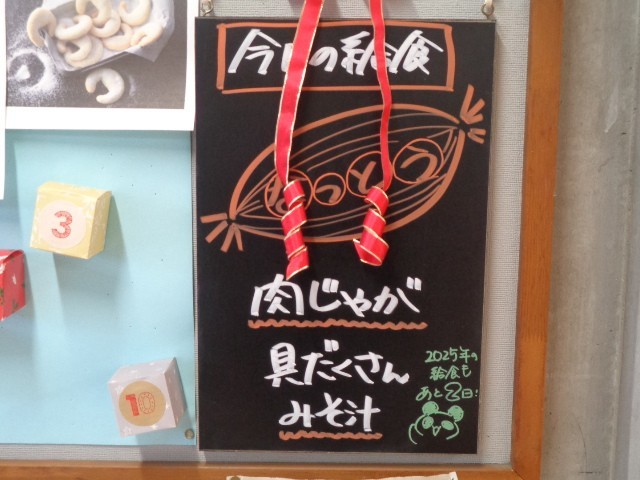 今日の給食
なっとう
肉じゃが
具だくさん
みそ汁
2025年の
給食も
あと2日!
3
10